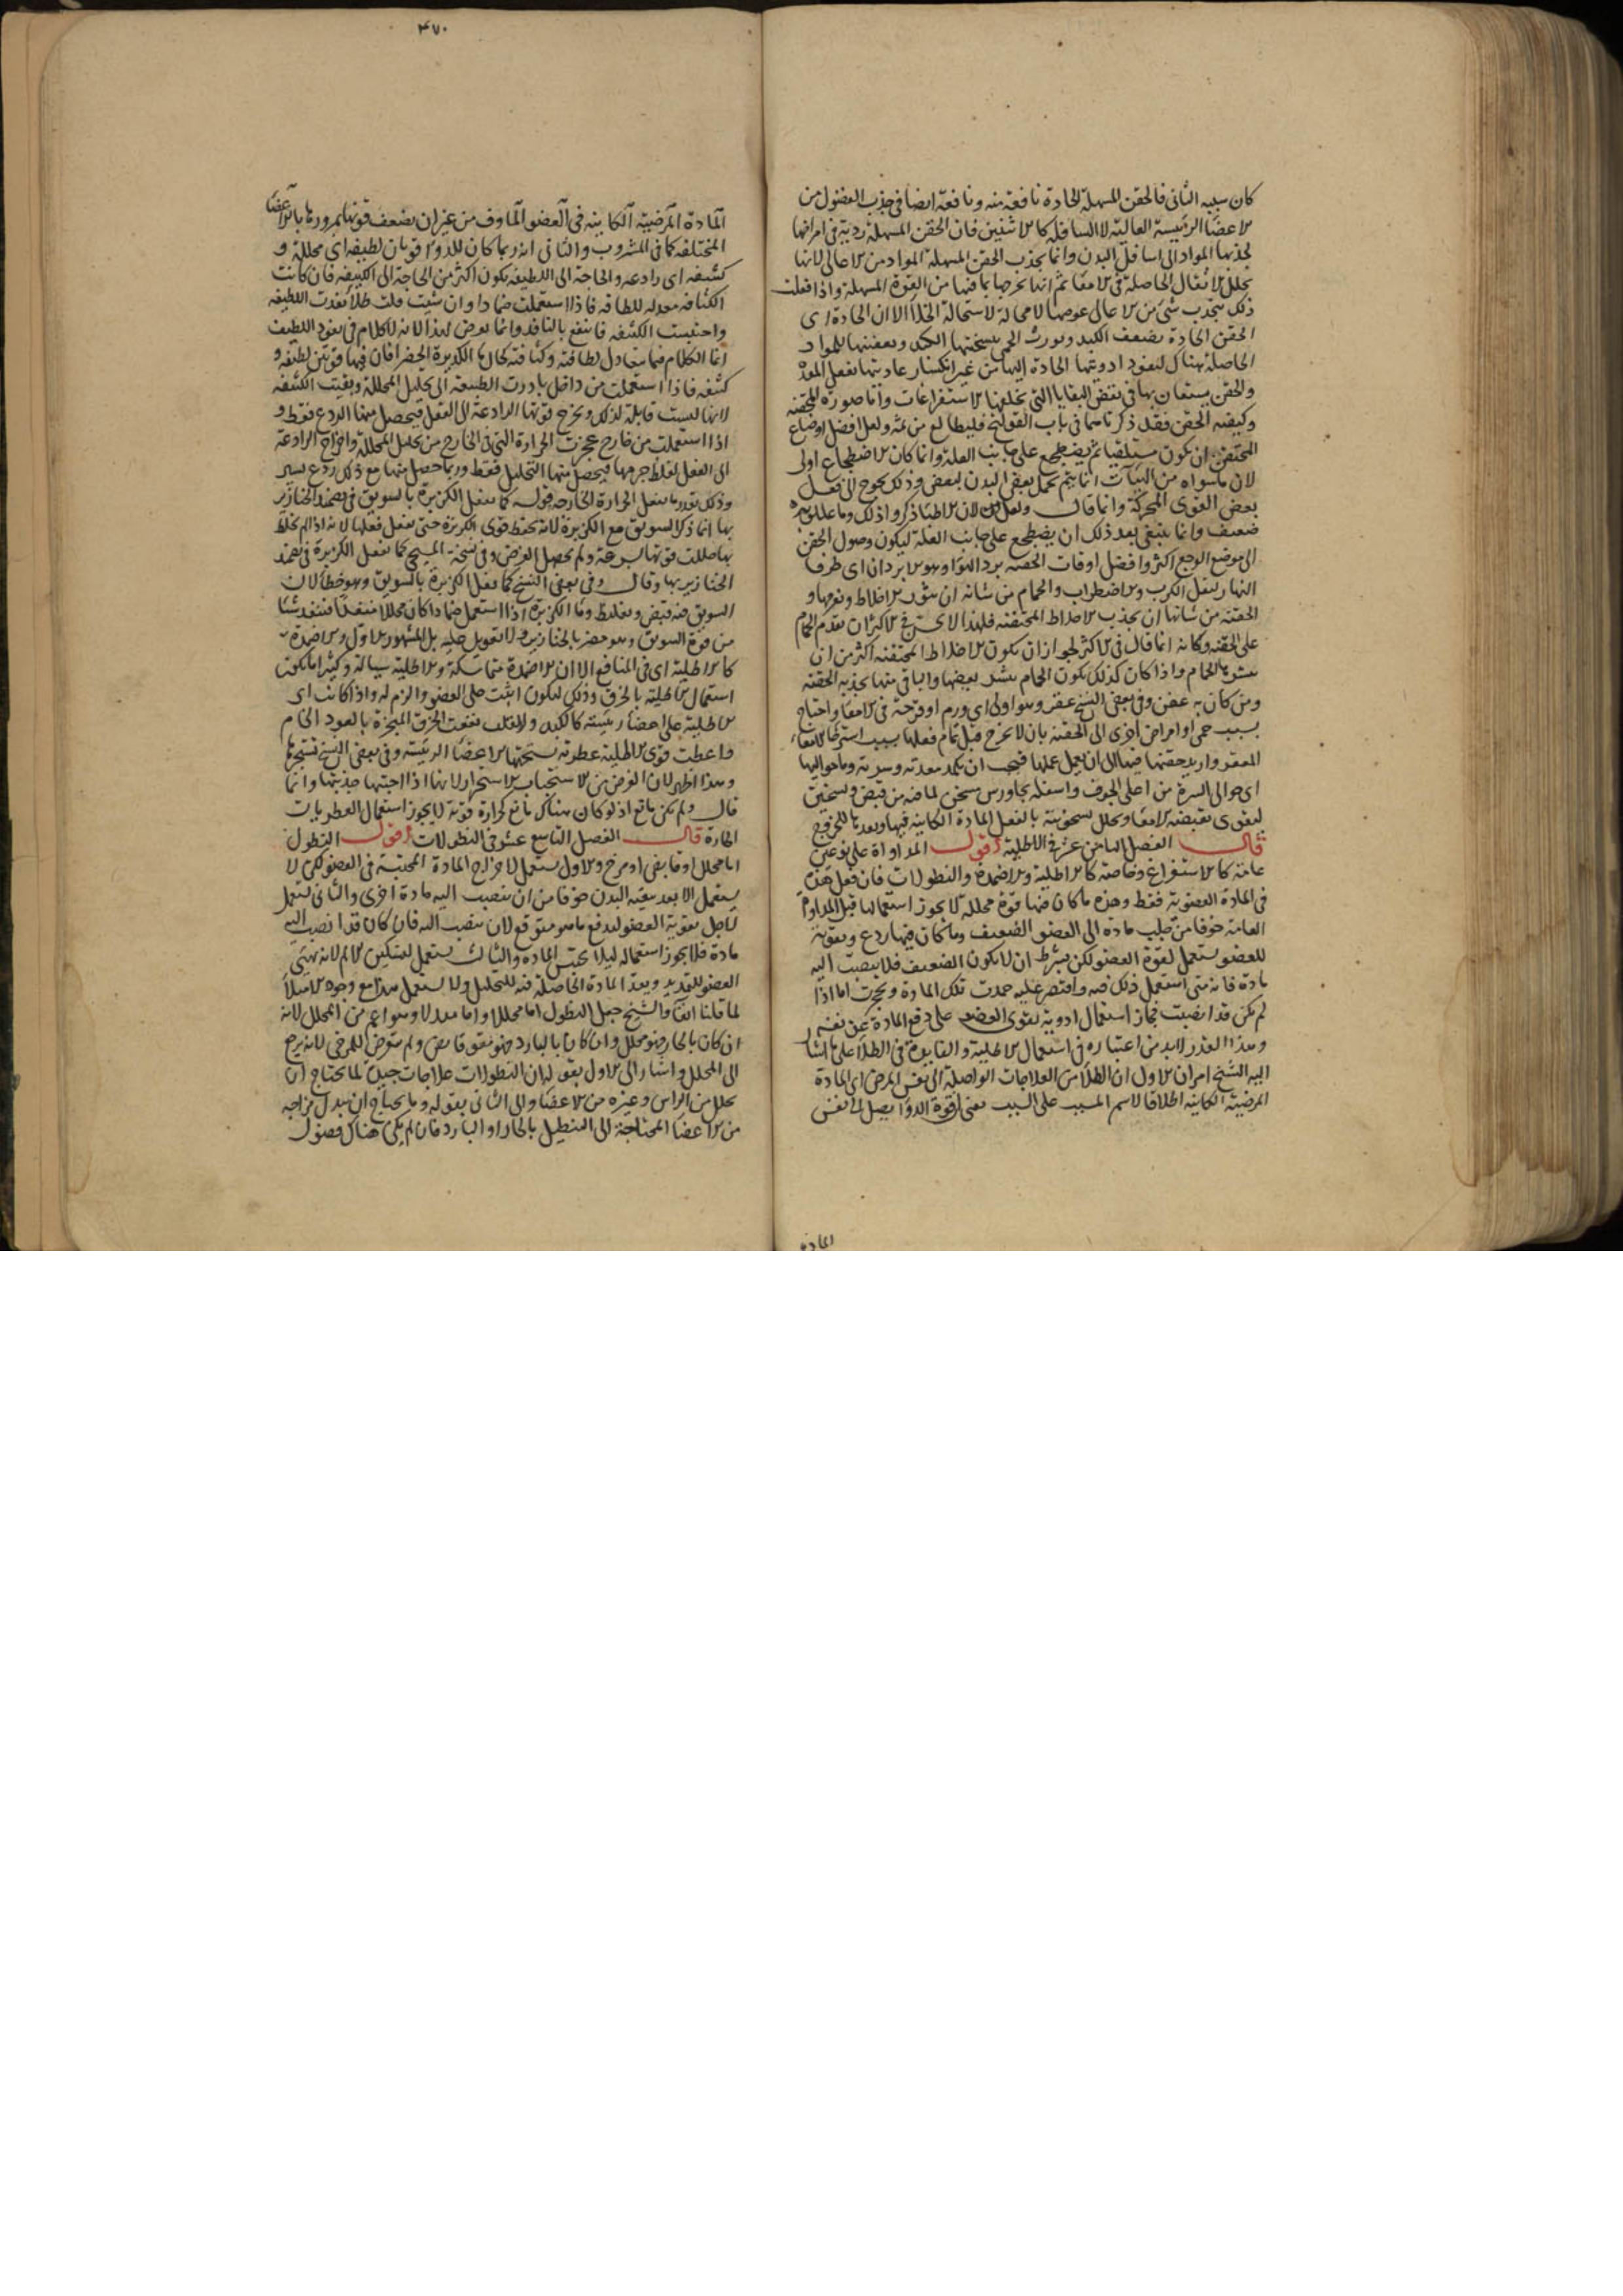 كان سببه الثانى فالحقن المسهلة الحادة نافعة منه ونافعة ايضا فى جذب الفضول من
الاعضا الرئيسة العالية لا السافلة كالانثيين فان الحقن المسهلة ردية فى امراضها
لجذبها المواد الى اسافل البدن وانما تجذب الحقن المسهلة المواد من الاعالى لانها
تحلل الاثفال الحاصلة فى الامعا ثم انها تخرجها بما فيها من القوة المسهلة واذا فعلت
ذلك ينجذب شئ من الاعالى عوضها لا محالة لاستحالة الخلا الا ان الحادة اى
الحقن الحادة تضعف الكبد وتورث الحمى بتسخينها الكبد وتعفينها للمواد
الحاصلة هناك لنفوذ ادويتها الحادة اليها من غير انكسار عاديتها بفعل المعدة
والحقن يستعان بها فى نفض البقايا التى تخلفها الاستفراغات واما صورة المحقنة
وكيفية الحقن فقد ذكرناهما فى باب القولنج فليطالع من ثمة ولعل افضل اوضاع
المحتقن ان يكون مستلقيا ثم يضطجع على جانب العلة وانما كان الاضطجاع اولى
لان ما سواه من الهيآت انما يتم بحمل بعض البدن لبعض وذلك يحوج الى فعل
بعض القوى المحركة وانما قال ولعل لان الاطبا ذكروا ذلك وما عللوه به
ضعيف وانما ينبغى بعد ذلك ان يضطجع على جانب العلة ليكون وصول الحقن
الى موضع الوجع اكثر وافضل اوقات الحقنة برد الهوا وهو الابردان اى طرفا
النهار ليقل الكرب والاضطراب والحمام من شانه ان يثور الاخلاط ويفرقها و
الحقنة من شانها ان تجذب الاخلاط المحتقنة فلهذا لا يحسن فى الاكثر ان تقدم الحمام
على الحقنة وكانه انما قال فى الاكثر لجواز ان يكون الاخلاط المحتقنة اكثر من ان
تنتشر بالحمام واذا كان كذلك يكون الحمام ينشر بعضها والباقى منها تجذبه الحقنة
ومن كان به عفن وفى بعض النسخ عقر وهو اولى اى ورم او قرحة فى الامعا واحتاج
بسبب حمى او امراض اخرى الى الحقنة بان لا تخرج قبل تمام فعلها بسبب
وارید حقنها فيها الى ان تعمل عملها فيجب ان تكمد معدته وسرته وما حواليها
اى حوالى السرة من اعلى الجوف واسفله بجاورس مسخن لما فيه من قبض وتسخين
ليقوى بقبضه الامعا ويحلل بسخونته بالفعل المادة الكاينة فيها ويعدها للخروج
قال الفصل الثامن عشر فى الاطلية اقول المداواة على نوعين
عامة كالاستفراغ وخاصة كالاطلية والاضمدة والنطولات فان فعل هذه
فى المادة العضوية فقط وهذه ما كان فيها قوة محللة لا يجوز استعمالها قبل المداواة
العامة خوفا من جلب مادة الى العضو الضعيف وما كان فيها ردع وتقوية
للعضو يستعمل لقوة العضو لكن بشرط ان لا يكون الضعيف فلا ينصب اليه
مادة فانه متى استعمل ذلك فيه واقتصر عليه جمدت تلك المادة وتحجرت اما اذا
لم تكن قد انصبت فجاز استعمال ادوية تقوى العضو على دفع المادة عن نفسه
وهذا القدر لابد من اعتباره فى استعمال الاطلية والفايدة فى الطلا على ما اشار
اليه الشيخ امران الاول ان الطلا من العلاجات الواصلة الى نفس المرض اى المادة
المرضية الكاينة اطلاقا لاسم المسبب على السبب يعنى ان قوة الدوا يصل الى نفس
المادة
٣٧٠
المادة المرضية الكاينة فى العضو الماوف من غير ان يضعف قوتها بمرورها بالاعضا
المختلفة كما فى المشروب والثانى انه ربما كان للدوا قوتان لطيفة اى محللة و
كثيفة اى رادعة والحاجة الى اللطيفة تكون اكثر من الحاجة الى الكثيفة فان كانت
الكثافة معدلة للطافة فاذا استعملت ضمادا وان شئت قلت طلا نفذت اللطيفة
واحتبست الكثيفة فانتفع بالنافذ وانما لهذا لانه لا كلام فى نفوذ اللطيف
انما الكلام فيما تعادل لطافته وكثافته كحال الكزبرة الخضرا فان فيها قوتين لطيفة و
كثيفة فاذا استعملت من داخل بادرت الطبيعة الى تحليل المحللة وبقيت الكثيفة
لانها ليست قابلة لذلك وتخرج قوتها الرادعة الى الفعل فيحصل منها الردع فقط و
اذا استعملت من خارج عجزت الحرارة التى فى الخارج من تحليل المحللة واخراج الرادعة
الى الفعل لغلظ جرمها فيحصل منها التحليل فقط وربما حصل منها مع ذلك ردع يسير
وذلك بقدر ما تفعل الحرارة الخارجة قوله كما تفعل الكزبرة بالسويق فى تضميد الخنازير
بها انما ذكر السويق مع الكزبرة لانه يحفظ قوى الكزبرة حتى تفعل فعلها لانه اذا لم تخلط
بها تحللت قوتها بسرعة ولم يحصل الغرض وفى نسخة المسيحى كما تفعل الكزبرة فى تضميد
الخنازير بها وقال وفى بعض النسخ كما تفعل الكزبرة بالسويق وهو خطا لان
السويق فيه قبض وتغليظ وما الكزبرة اذا استعمل ضمادا كان محللا فينفذ شيئا
من قوة السويق وهو مضر بالخنازير والتعويل عليه بل المشهور الاول والاضمدة
كالاطلية اى فى المنافع الا ان الاضمدة متماسكة والاطلية سيالة وكثيرا ما يكون
استعمال الاطلية بالخرق وذلك ليكون اثبت على العضو والزم له واذا كانت اى
الاطلية على اعضا رئيسة كالكبد والقلب نفعت الخرق المبخرة بالعود الخام
واعطت قوى الاطلية عطرية تستحبها الاعضا الرئيسة وفى بعض النسخ تستجرها
وهذا اظهر لان الغرض من الاستحباب الاستجرار لانها اذا احبتها جذبتها وانما
قال ولم يكن مانع اذ لو كان هناك مانع كحرارة قوية لا يجوز استعمال العطريات
الحارة قال الفصل التاسع عشر فى النطولات اقول النطول
اما محلل او قابض او مرخ والاول يستعمل لاخراج المادة المحتبسة فى العضو لكن لا
يستعمل الا بعد تنقية البدن خوفا من ان ينصب اليه مادة اخرى والثانى يستعمل
لاجل تقوية العضو لدفع ما هو متوقع لان ينصب اليه فان كان قد انصب اليه
مادة فلا يجوز استعماله ليلا يحتبس المادة والثالث يستعمل لتسكين الالم لانه يهيئ
العضو للتمديد ويعد المادة الحاصلة فيه للتحليل ولا يستعمل هذا مع وجود الامتلا
لما قلنا انفا والشيخ جعل النطول اما محللا واما معدلا وهو اعم من المحلل لانه
ان كان بالحار فهو محلل وان كان بالبارد فهو مقو قابض ولم يتعرض للمرخى لانه يرجع
الى المحلل واشار الى الاول بقوله ان النطولات علاجات جيدة لما يحتاج ان
يحلل من الراس وغيره من الاعضا والى الثانى بقوله وما يحتاج ان يبدل مزاجه
من الاعضا المحتاجة الى التنطيل بالحار او البارد فان لم يكن هناك فضول